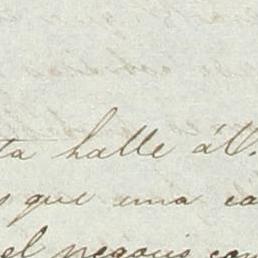 ta halle áV.
s que una ca
el negocio con